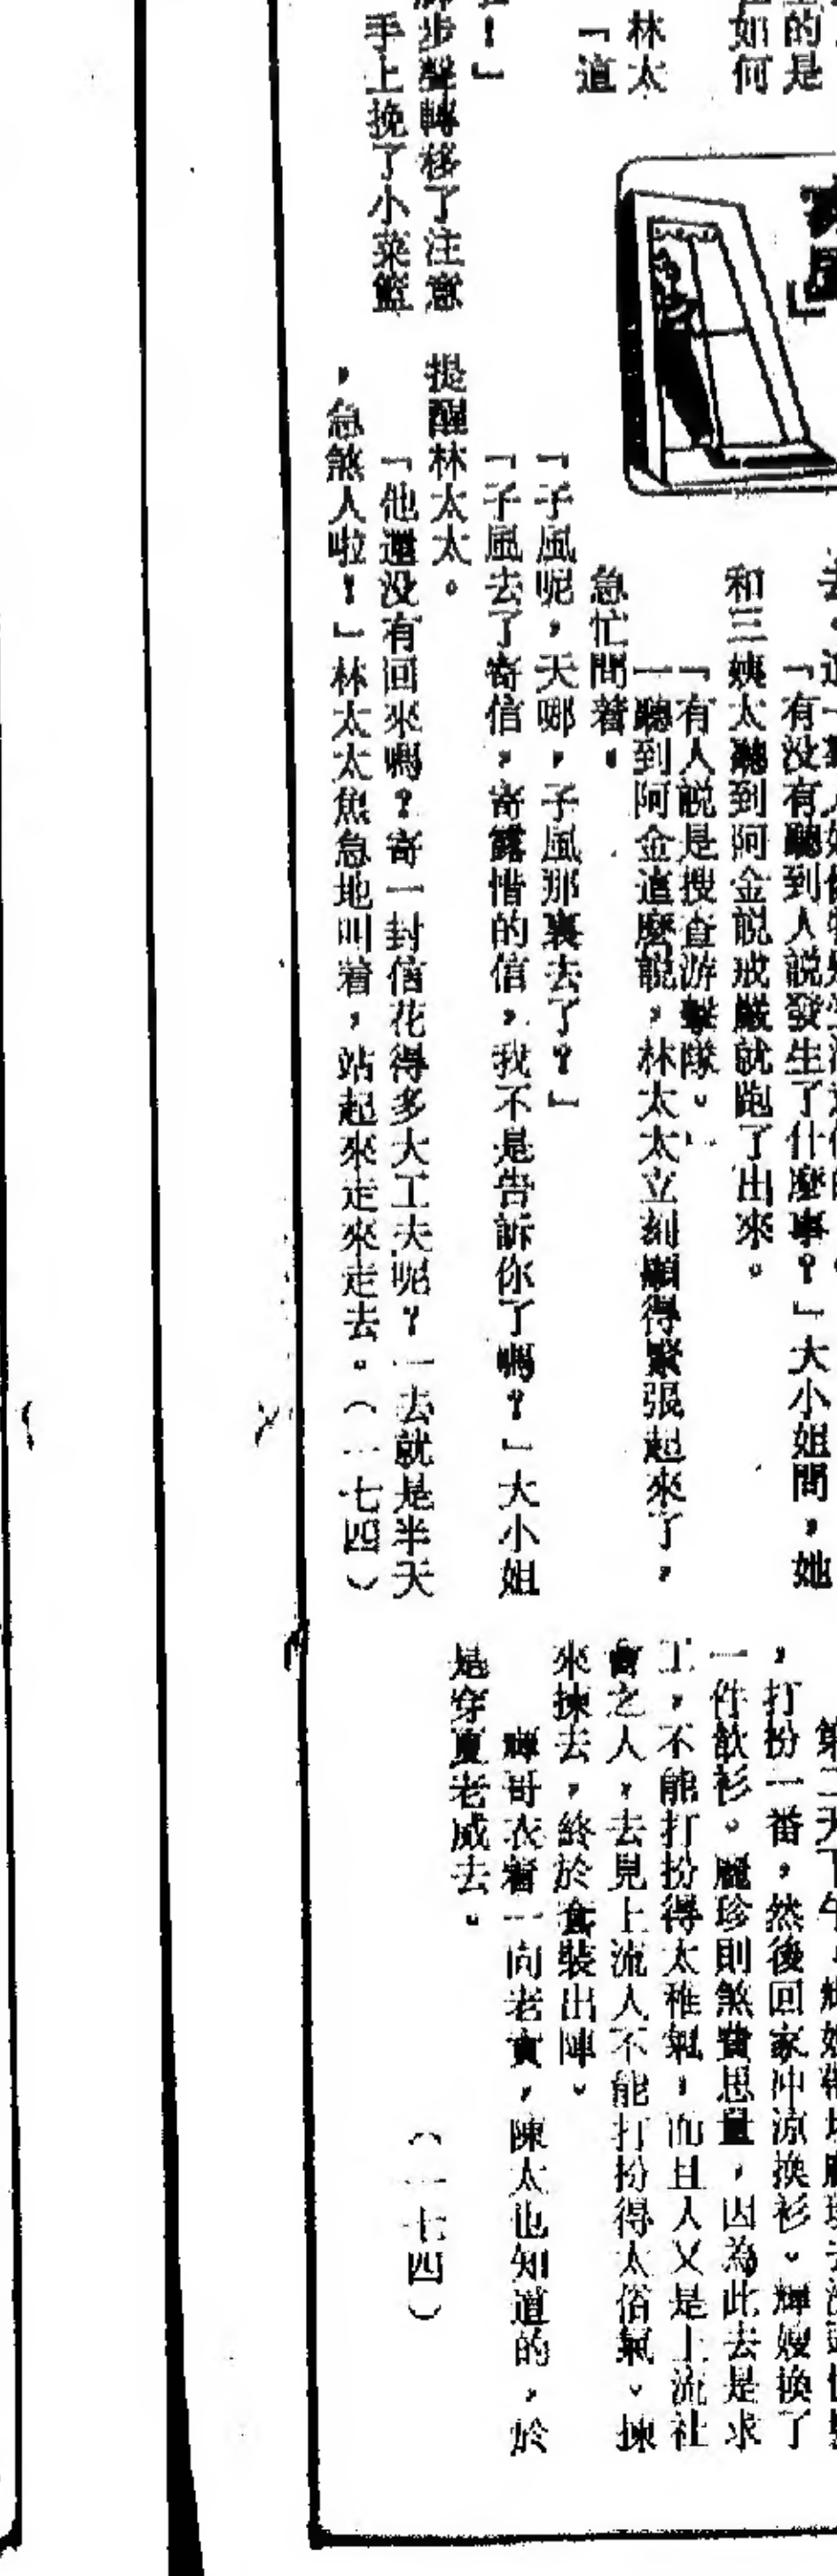 的是
如何
林太
「道
！」
步聲轉移了注意
手上挽了小菜籃
「有没有聽到人説發生了什麽事？」大小姐問，她
和三姨太聽到阿金説戒嚴就跑了出來。
「有人説是搜查游擊隊。」
一聽到阿金這麽説，林太太立刻顯得緊張起來了，
急忙問着。
「子風呢，天哪，子風那裏去了？」
「子風去了寄信，寄露惜的信，我不是告訴你了嗎？」大小姐
提醒林太太。
「他還没有回來嗎？寄一封信花得多大工夫呢？一去就是半天
，急煞人啦！」林太太焦急地叫着，站起來走來走去。（一七四）
，打扮一番，然後回家沖涼換衫。輝嫂換了
一件歆衫。麗珍則煞費思量，因為此去是求
工，不能打扮得太稚氣，而且人又是上流社
會之人，去見上流人不能打扮得太俗氣。揀
來揀去，終於套裝出陣。
輝哥衣着一向老實，陳太也知道的，於
是穿夏老威去。
（一七四）